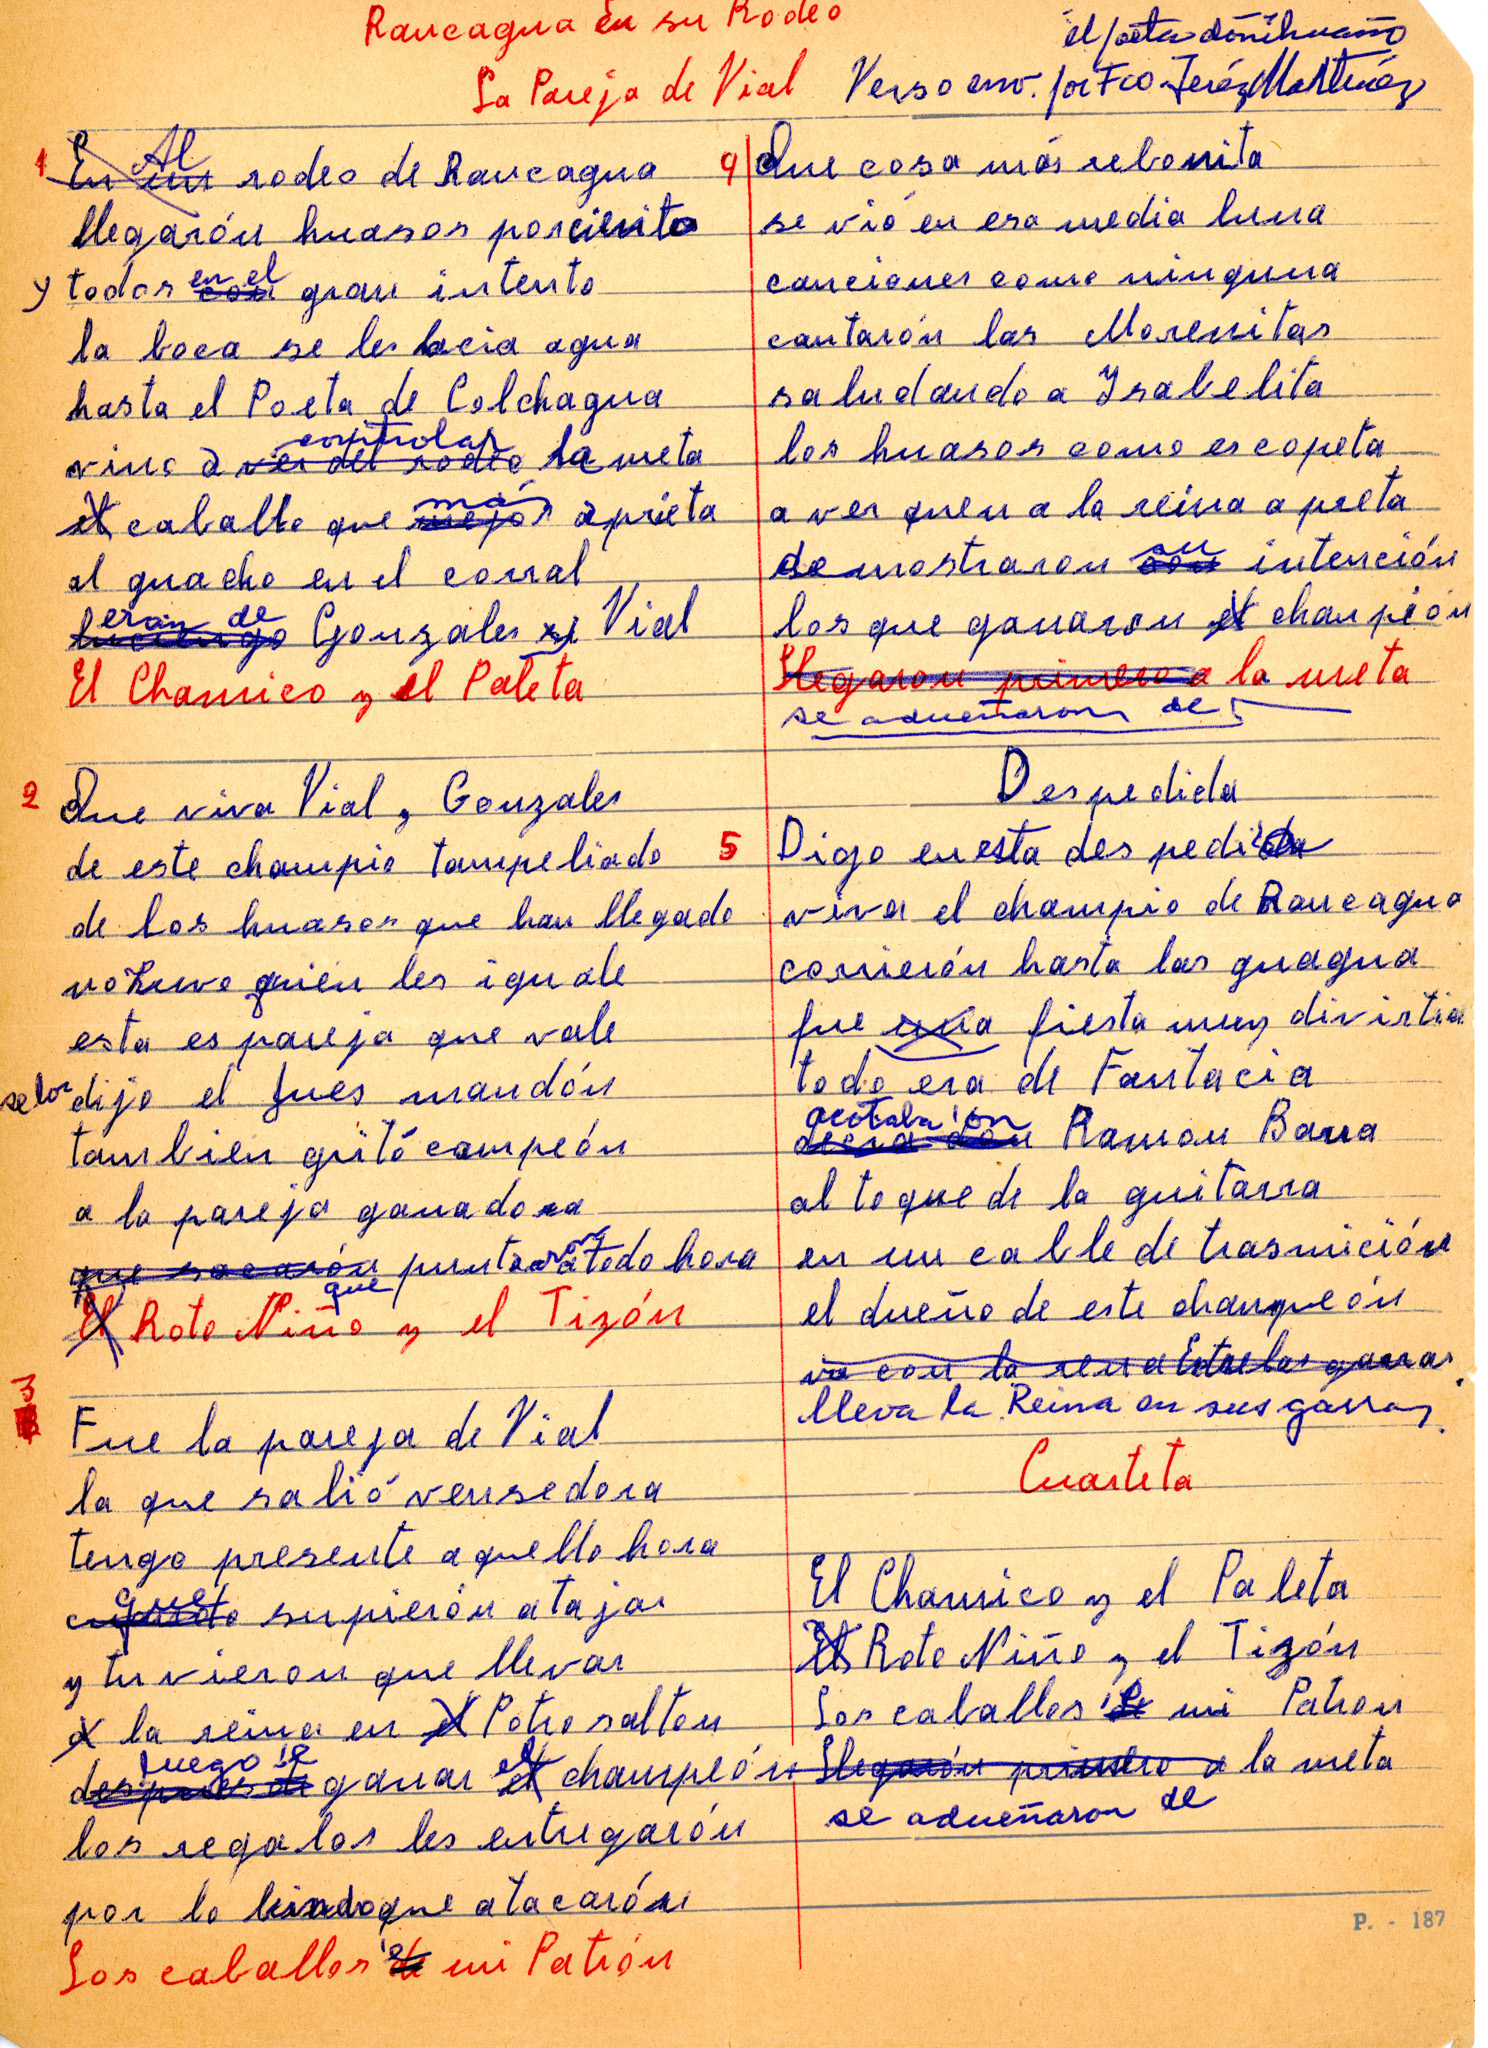 Rancagua en su Rodeo
el poeta doñihuano
La Pareja de Vial Verso enc. por Fco. Jeréz Martínez
1 En un Al rodeo de Rancagua
llegarón huasos porciento
y todos con en el gran intento
la boca se les hacia agua
hasta el Poeta de Colchagua
vino a ver del rodeo controlar la meta
el caballo que mejor más aprieta
al guacho en el corral
eran de Gonzales y Vial
El Chamico y el Paleta
2 Que viva Vial y Gonzales
de este champio tampeliado
de los huasos que han llegado
no huvo quien les iguale
esta es pareja que vale
se los dijo el jues mandón
tambien gritó campeón
a la pareja ganadora
que sacarón puntaron a todo hora
El Roto Niño que y el Tizón
3
Fue la pareja de Vial
la que salió vensedora
tengo presente aquello hora
cuando que supierón atajar
y tuvieron que llevar
a la reina en el Potro salton
despues de luego 'e ganar el el champeón
los regalos les entregarón
por lo lindo que atacarón
Los caballos de 'e mi Patrón
4 Que cosa más rebonita
se vió en esa media luna
canciones como ninguna
cantarón las Morenitas
saludando a Ysabelita
los huasos como escopeta
a ver quen a la reina apreta
demostraron con su intención
los que ganaron el champión
Llegaron primero a la meta
se adueñaron de
Despedida
5 Digo en esta despedida
viva el champio de Rancagua
corrierón hasta las guagua
fue una fiesta muy divirtia
todo era de Fantacia
decia don acotaba 'on Ramon Barra
al toque de la guitarra
en un cable de trasmición
el dueño de este champeón
va con la rena Entre las garras.
lleva la Reina en sus garras.
Cuarteta
El Chamico y el Paleta
El Roto Niño y el Tizón
Los caballos de 'e mi Patron
Llegarón primero a la meta
se adueñaron de
P. - 187